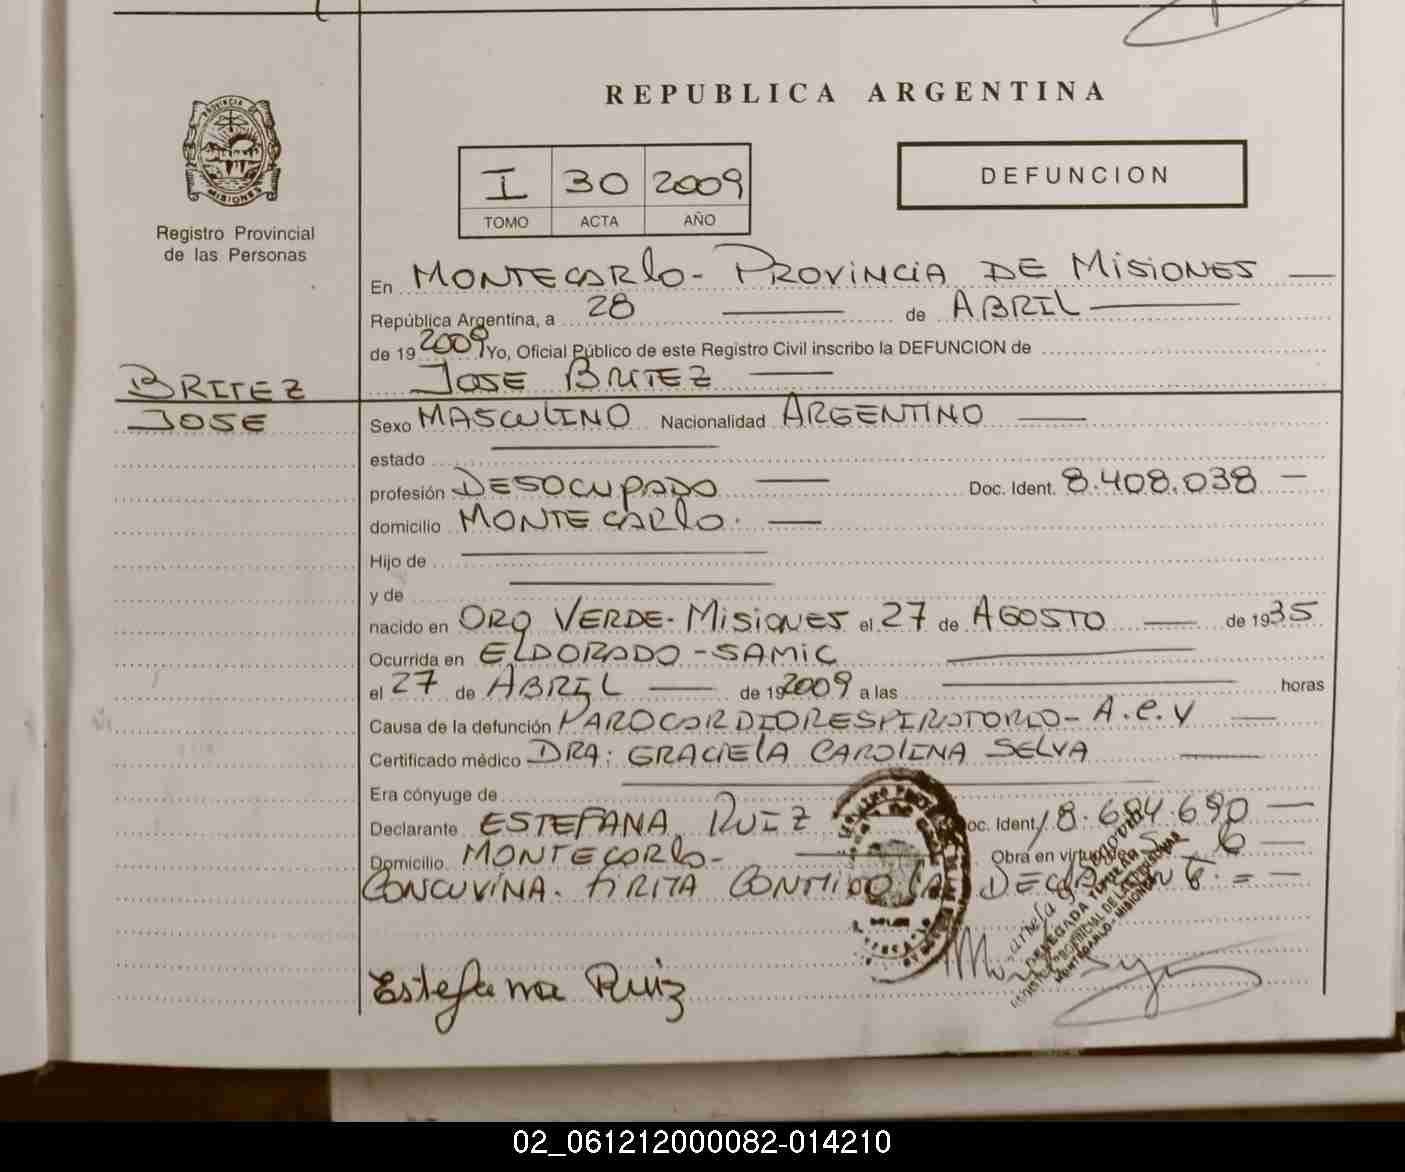 REPUBLICA ARGENTINA
PROVINCIA DE
MISIONES
Registro Provincial
de las Personas
I 30 2009
TOMO ACTA AÑO
DEFUNCION
En MONTECARLO - PROVINCIA DE MISIONES
República Argentina, a 28 de ABRIL
de 19 2009 Yo, Oficial Público de este Registro Civil inscribo la DEFUNCION de
JOSE BRITEZ
BRITEZ
JOSE
Sexo MASCULINO Nacionalidad ARGENTINO
estado
profesión DESOCUPADO Doc. Ident. 8.408.038
domicilio MONTECARLO.
Hijo de
y de
nacido en ORO VERDE - MISIONES el 27 de AGOSTO de 1935
Ocurrida en ELDORADO - SAMIC
el 27 de ABRIL de 19 2009 a las horas
Causa de la defunción PAROCARDIORESPIRATORIO - A.C.V
Certificado médico DRA: GRACIELA CAROLINA SELVA
Era cónyuge de
Declarante ESTEFANA RUIZ oc. Ident. 18.684.690
Domicilio MONTECARLO - Obra en virtud de S. 6
CONCUVINA. FIRMA CONMIGO LA
Estefana Ruiz
DELEGADA TITULAR
REGISTRO PROVINCIAL DE LAS PERSONAS
MONTECARLO - MISIONES
02_061212000082-014210